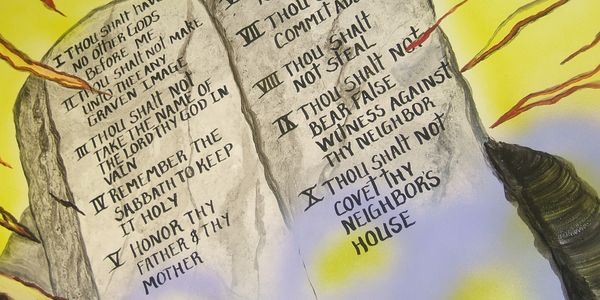 I THOU SHALT HAVE
NO OTHER GODS
BEFORE ME
II THOU SHALL NOT MAKE
UNTO THEE ANY
GRAVEN IMAGE
III THOU SHALT NOT
TAKE THE NAME OF
THE LORD THY GOD IN
VAIN
IV REMEMBER THE
SABBATH TO KEEP
IT HOLY
V HONOR THY
FATHER & THY
MOTHER
VII THOU
COMMIT
VIII THOU SHALT
NOT STEAL
IX THOU SHALT NOT
BEAR FALSE
WITNESS AGAINST
THY NEIGHBOR
X THOU SHALT NOT
COVET THY
NEIGHBOR'S
HOUSE